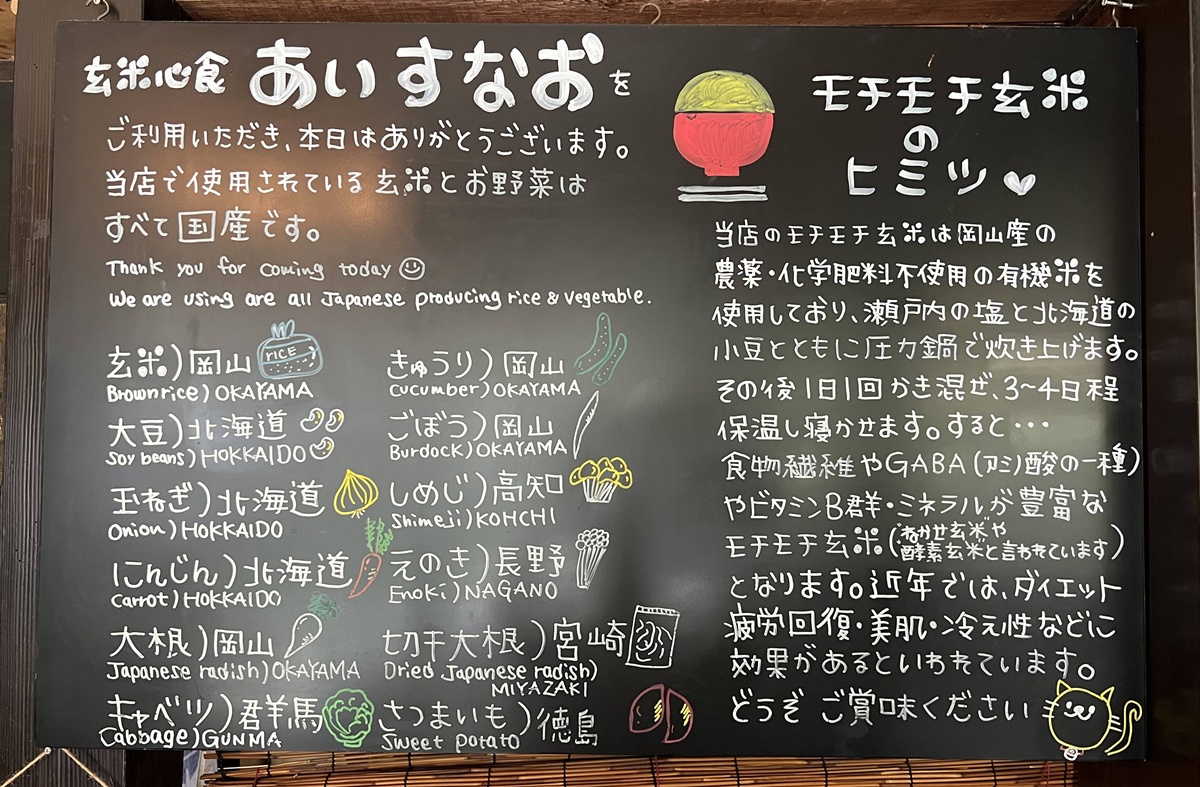 玄米心食 あいすなおを
ご利用いただき、本日はありがとうございます。
当店で使用されている玄米とお野菜は
すべて国産です。
Thank you for coming today
We are using are all Japanese producing rice & Vegetable.
玄米)岡山
RICE
Brown rice) OKAYAMA
大豆)北海道
Soy beans) HOKKAIDO
玉ねぎ)北海道
Onion) HOKKAIDO
にんじん)北海道
Carrot) HOKKAIDO
大根)岡山
Japanese radish) OKAYAMA
キャベツ)群馬
Cabbage) GUNMA
きゅうり)岡山
Cucumber) OKAYAMA
ごぼう)岡山
Burdock) OKAYAMA
しめじ)高知
Shimeji) KOHCHI
えのき)長野
Enoki) NAGANO
切干大根)宮崎
Dried Japanese radish)
MIYAZAKI
さつまいも)徳島
Sweet potato
モチモチ玄米
の
ヒミツ♥
当店のモチモチ玄米は岡山産の
農薬・化学肥料不使用の有機米を
使用しており、瀬戸内の塩と北海道の
小豆とともに圧力鍋で炊き上げます。
その後1日1回かき混ぜ、3~4日程
保温し寝かせます。すると・・・
食物繊維やGABA(アミノ酸の一種)
やビタミンB群・ミネラルが豊富な
モチモチ玄米("ねかせ玄米"や
酵素玄米と言われています)
となります。近年では、ダイエット
疲労回復・美肌・冷え性などに
効果があるといわれています。
どうぞ ご賞味ください